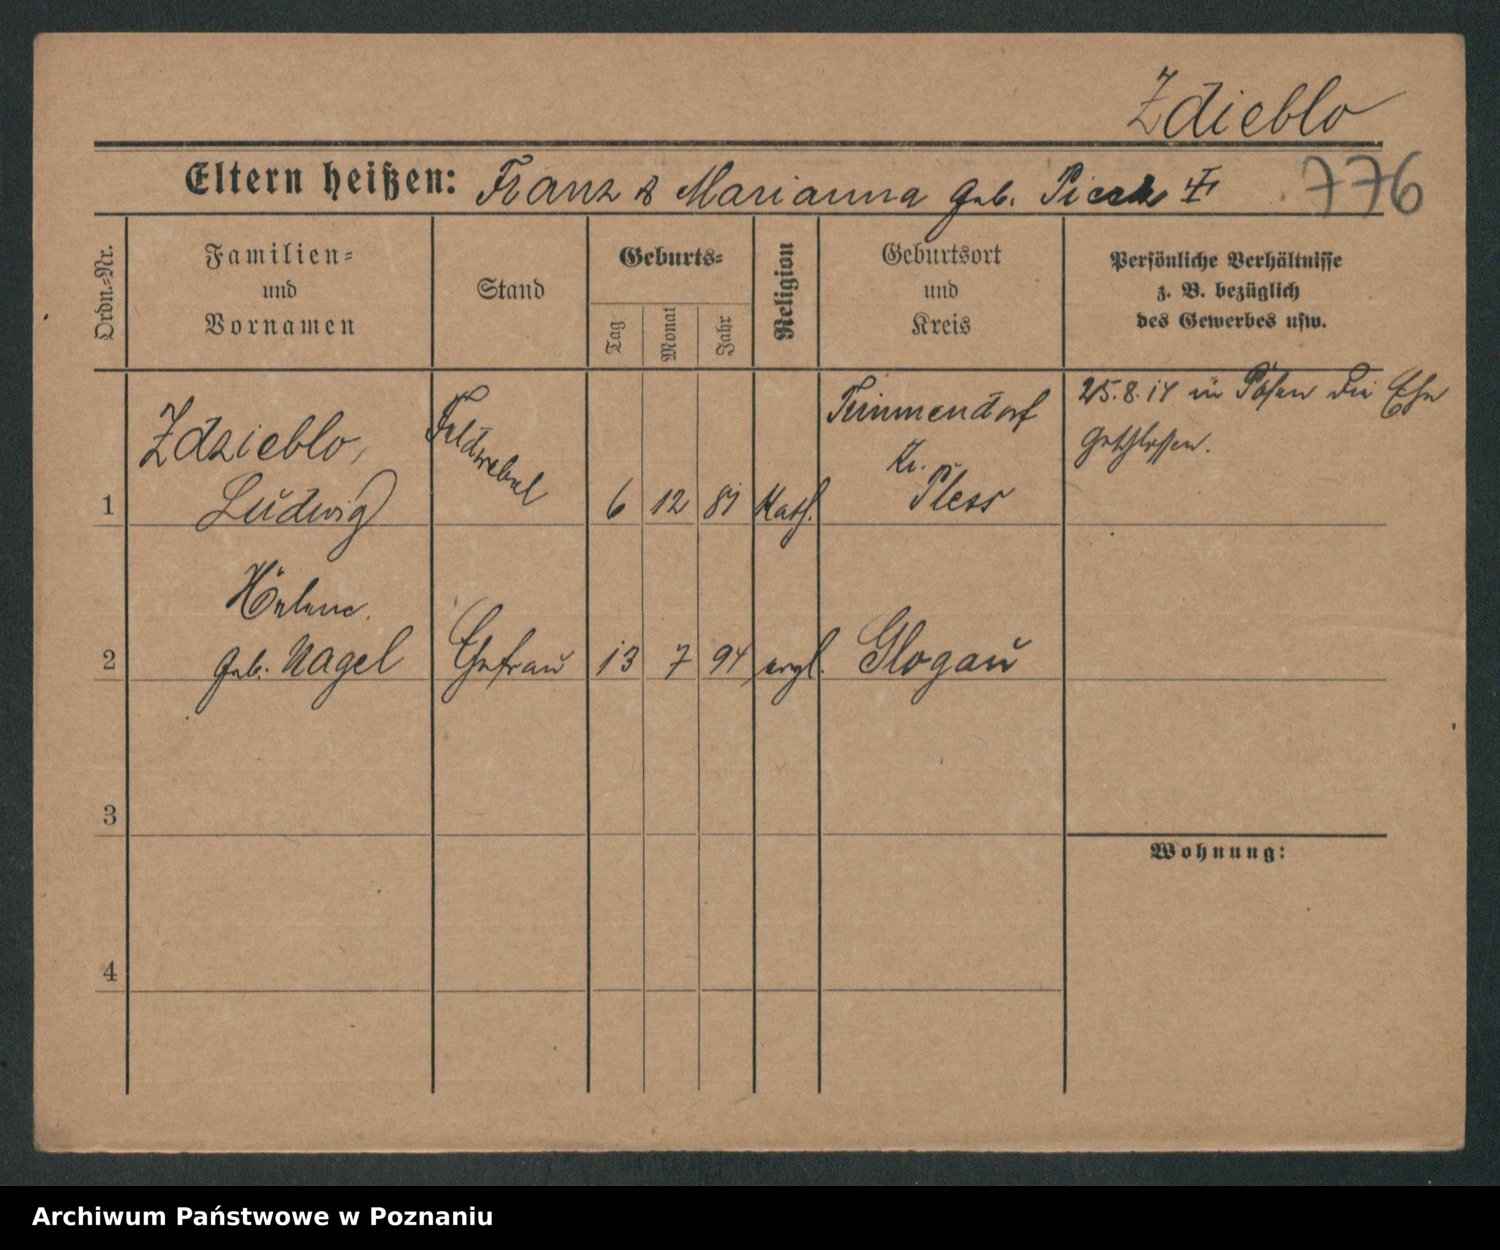 Zdieblo
Eltern heißen: Franz & Marianna geb.
776
Ordn.-Nr.
Familien-
und
Vornamen
Stand
Geburts-
Tag
Monat
Jahr
Religion
Geburtsort
und
Kreis
Persönliche Verhältnisse
z. B. bezüglich
des Gewerbes usw.
1
Zdzieblo,
Ludwig
Feldwebel
6 12
Kath.
Timmendorf
Kr.
Pless
25.8.14 in Posen die Ehe
geschlossen.
2
Helene
geb. Nagel
Ehefrau
13 7 94
evgl.
Glogau
3
Wohnung:
4
Archiwum Państwowe w Poznaniu